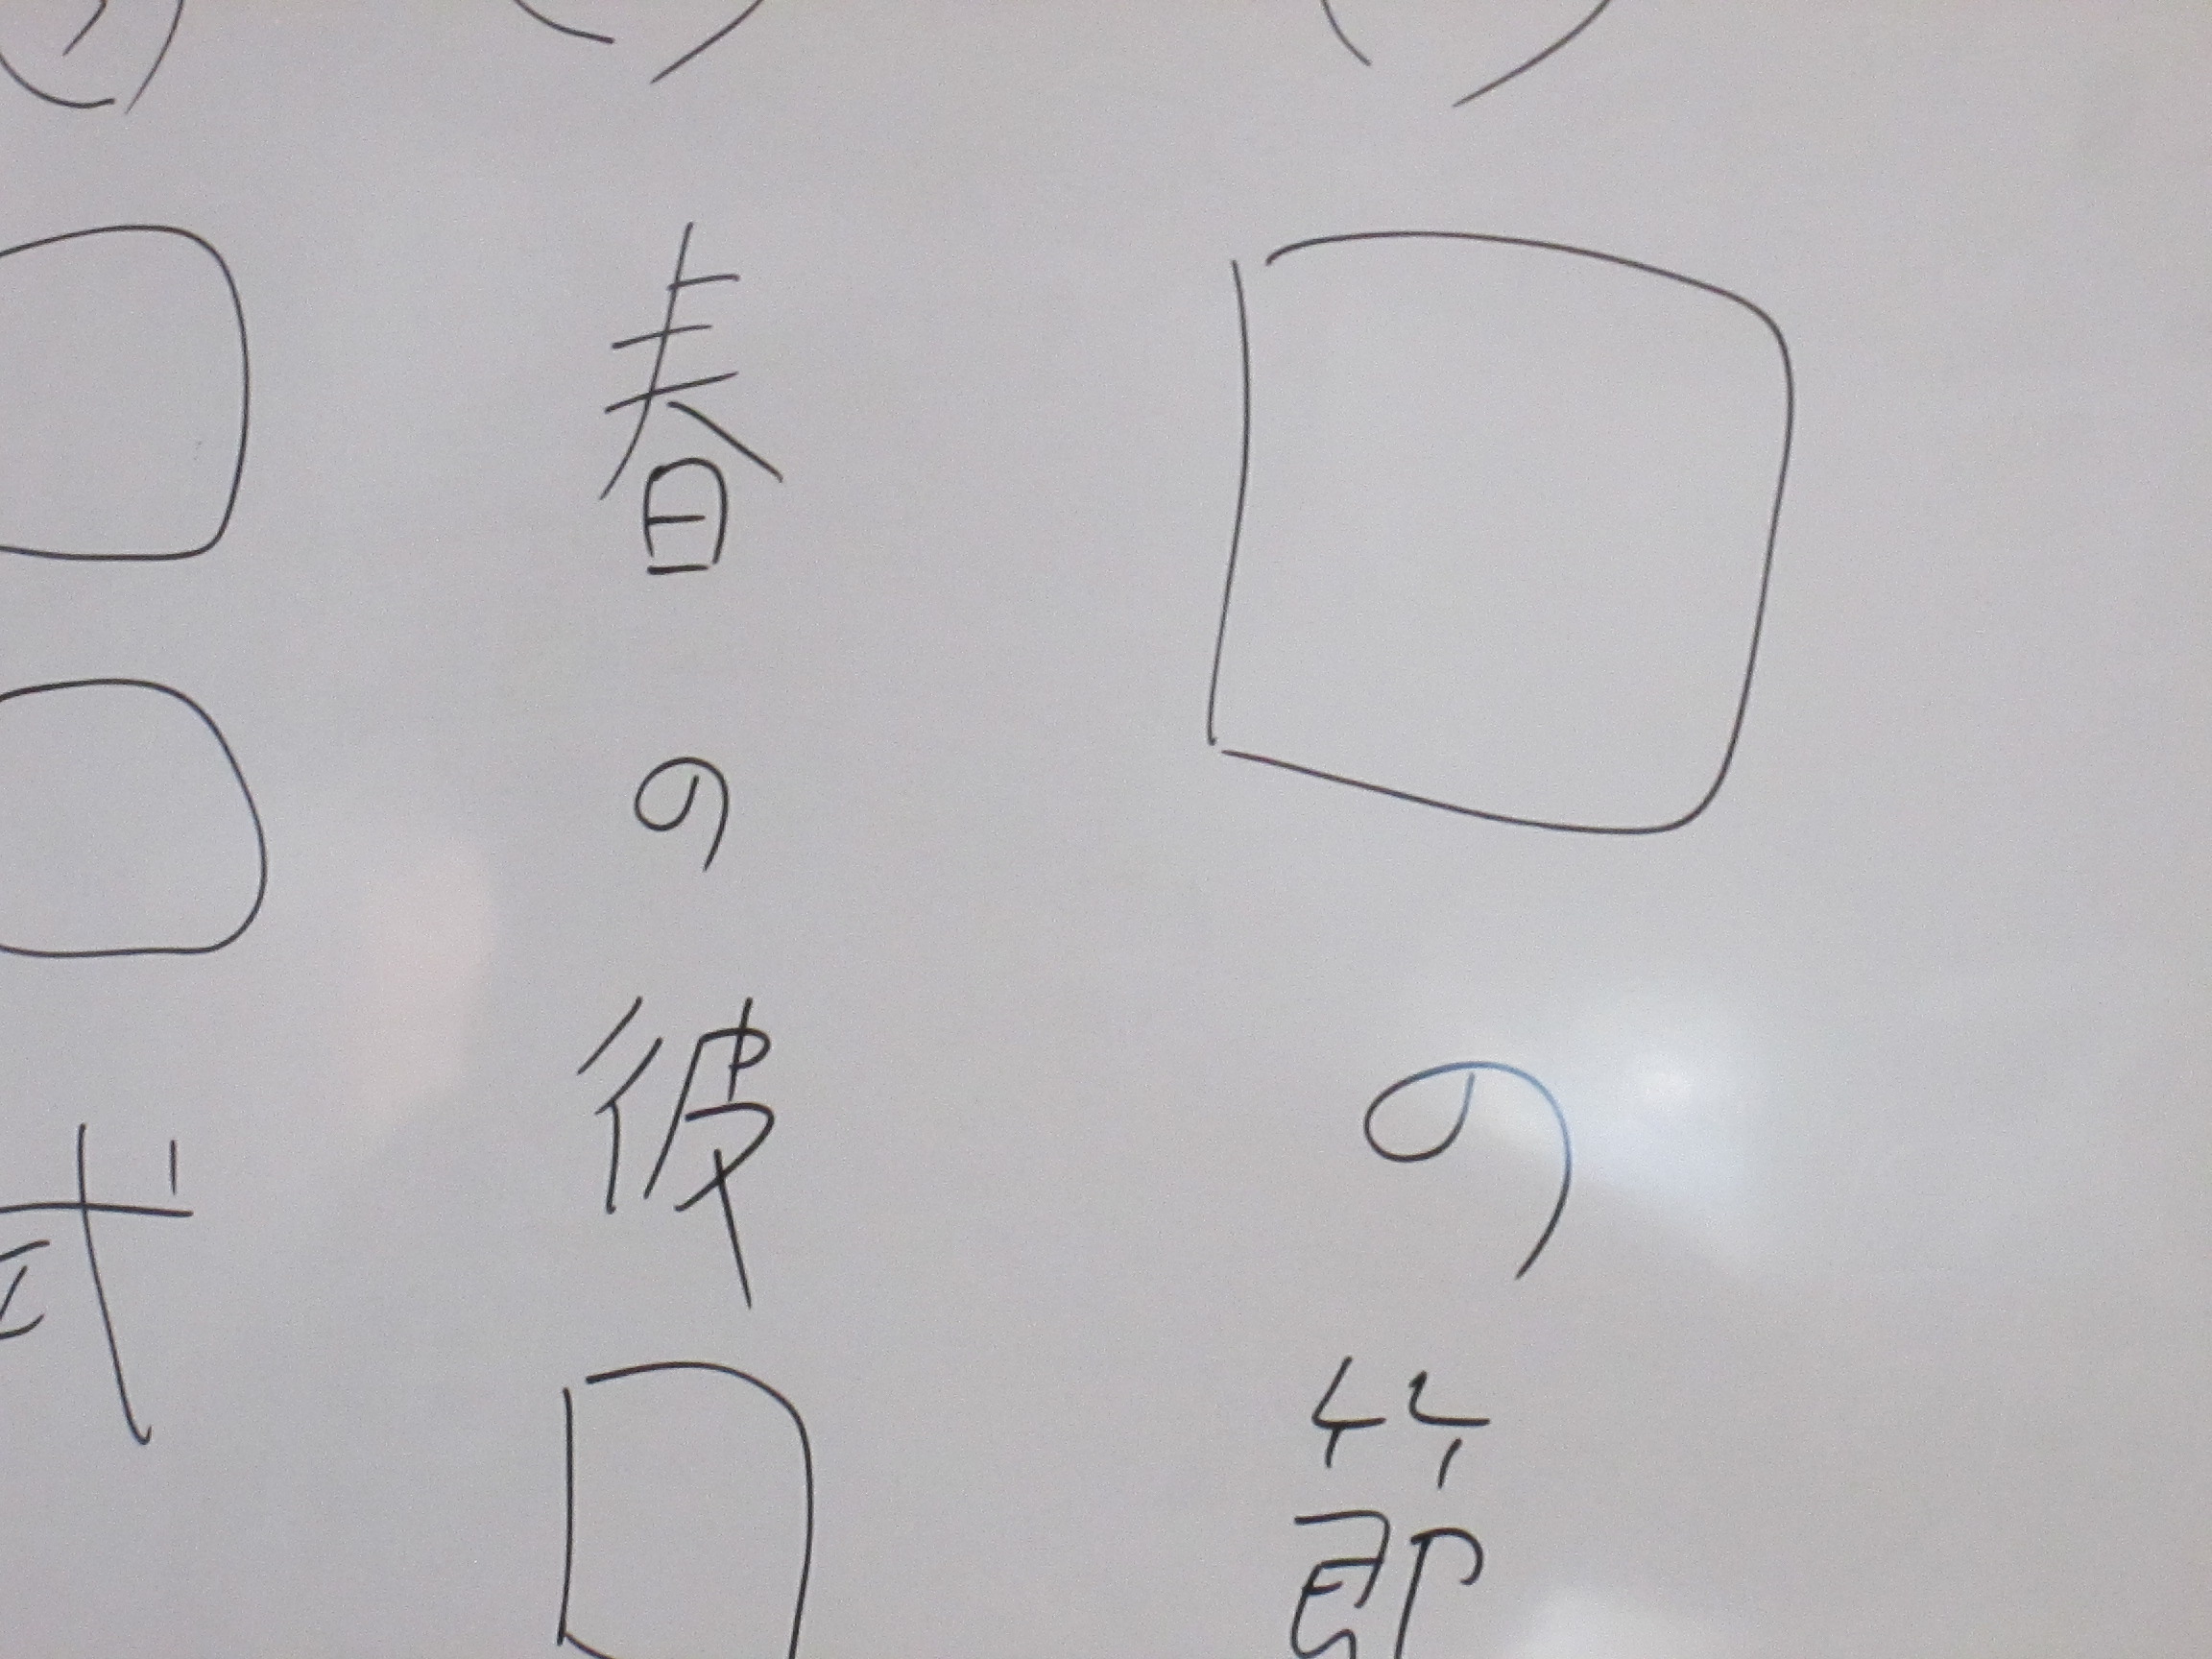 □の節
春の彼□
□□式